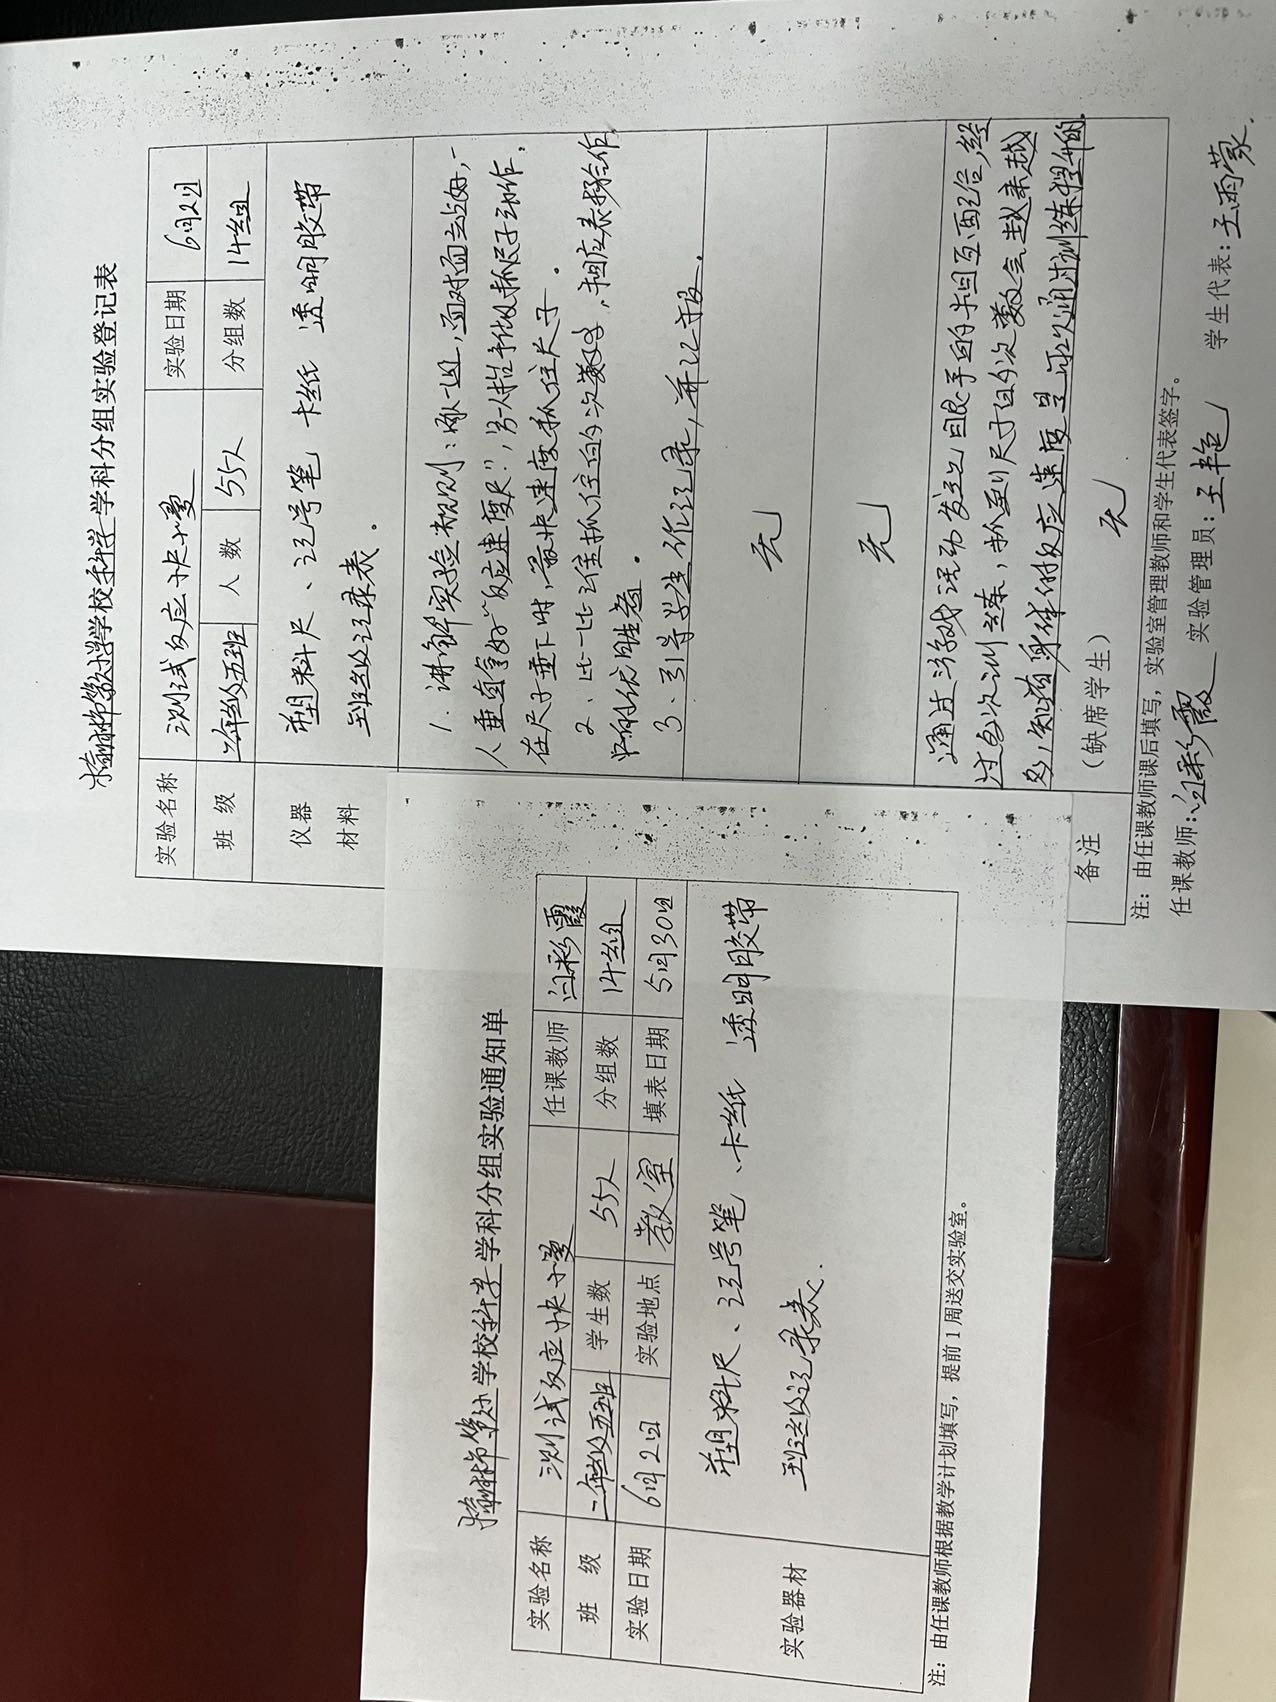 学校科学学科分组实验登记表
实验名称 测试反应快慢 实验日期 6月2日
班 级 二年级五班 人 数 55人 分组数 14组
仪器
材料
塑料尺、记号笔 卡纸 透明胶带
班级记录表。
1. 讲解实验规则:两人一组,面对面站好,一
人垂直拿好“反应速度尺”,另一人拇指做抓尺子动作,
在尺子垂下时,最快速度抓住尺子。
2、比一比谁抓住的次数多,相应表扬合作
中的优胜者。
3、引导学生作记录,并汇报。
无
无
通过游戏活动发现眼手的相互配合,经
过多次训练,抓到尺子的次数会越来越
多,知道身体的反应速度是可以通过训练提升的。
备注 (缺席学生) 无
注:由任课教师课后填写,实验室管理教师和学生代表签字。
任课教师:闫彩霞 实验管理员:王艳 学生代表:王雨蒙.
学校科学学科分组实验通知单
实验名称 测试反应快慢 任课教师 闫彩霞
班 级 二年级五班 学生数 55人 分组数 14组
实验日期 6月2日 实验地点 教室 填表日期 5月30日
实验器材
塑料尺、记号笔、卡纸 透明胶带
班级记录表.
注:由任课教师根据教学计划填写,提前1周送交实验室。